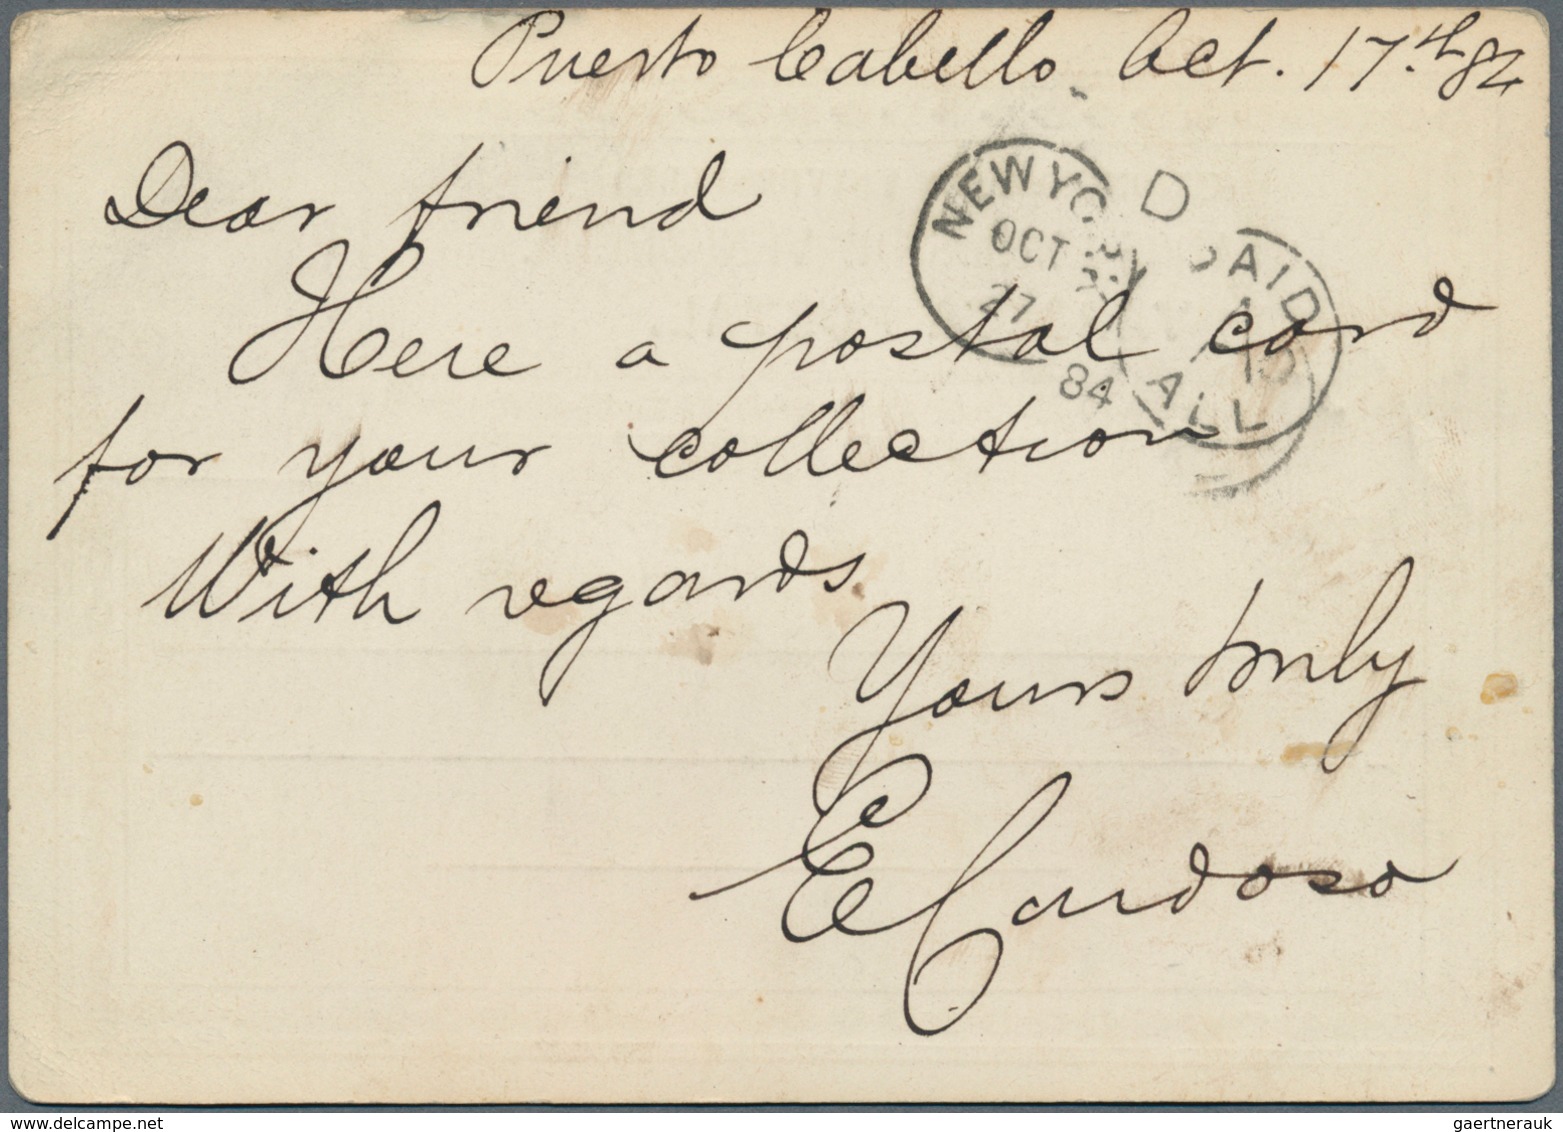 Puerto Cabello, Oct. 17th 84
Dear friend
NEW YORK D
OCT PAID
27
Here a postal card
84 ALL
for your collection
With regards
Yours truly
E Cardoso
gaertnerauk